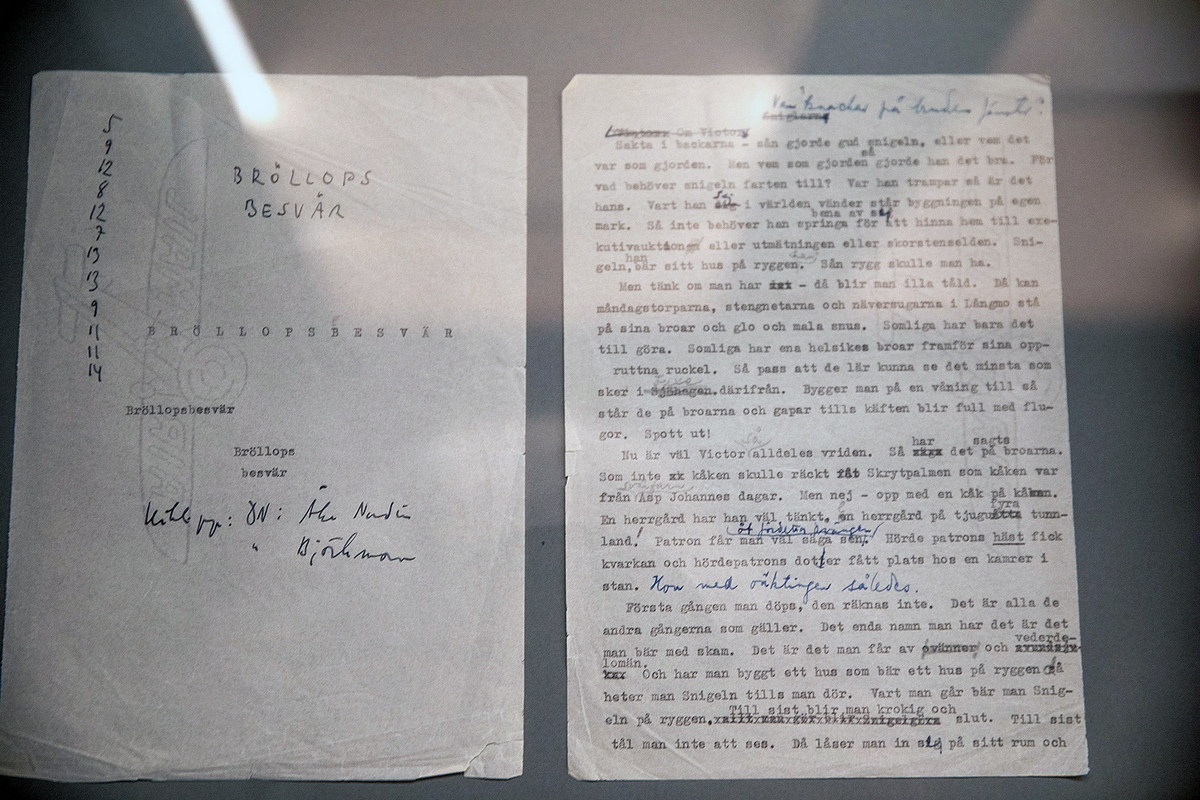 5
9
12
8
12
7
13
13
9
11
11
14
BRÖLLOPS
BESVÄR
BRÖLLOPSBESVÄR
Bröllopsbesvär
Bröllops
besvär
DN: Åke
" Björkman
Vem knackar på brudens fönster?
Sniglarna
Om Victor
Sakta i backarna - sån gjorde gud snigeln, eller vem det
så
var som gjorden. Men vem som gjorden gjorde han det bra. För
vad behöver snigeln farten till? Var han trampar så är det
hans. Vart han i världen vänder står byggningen på egen
bena av sig
mark. Så inte behöver han springa för att hinna hem till exe-
kutivauktion eller utmätningen eller skorstenselden. Sni-
han
geln, bär sitt hus på ryggen. Sån rygg skulle man ha.
Men tänk om man har xxx - då blir man illa tåld. Då kan
måndagstorparna, stengnetarna och näversugarna i Långmo stå
på sina broar och glo och mala snus. Somliga har bara det
till göra. Somliga har ena helsikes broar framför sina opp-
ruttna ruckel. Så pass att de lär kunna se det minsta som
sker i Sjöhagen därifrån. Bygger man på en våning till så
står de på broarna och gapar tills käften blir full med flu-
gor. Spott ut!
så har sagts
Nu är väl Victor alldeles vriden. Så xxxx det på broarna.
Som inte xx kåken skulle räckt fåt Skrytpalmen som kåken var
från Asp Johannes dagar. Men nej - opp med en kåk på kåken.
fyra
En herrgård har han väl tänkt, en herrgård på tjuguåtta tunn-
land! Patron får man väl säga sen. Hörde patrons häst fick
kvarkan och hördepatrons dotter fått plats hos en kamrer i
stan. Hon med växtingen således.
Första gången man döps, den räknas inte. Det är alla de
andra gångerna som gäller. Det enda namn man har det är det
vederde-
man bär med skam. Det är det man får av ovänner och
lomän.
xxx Och har man byggt ett hus som bär ett hus på ryggen så
heter man Snigeln tills man dör. Vart man går bär man Snig-
Till sist blir man krokig och
eln på ryggen, slut. Till sist
tål man inte att ses. Då låser man in sig på sitt rum och